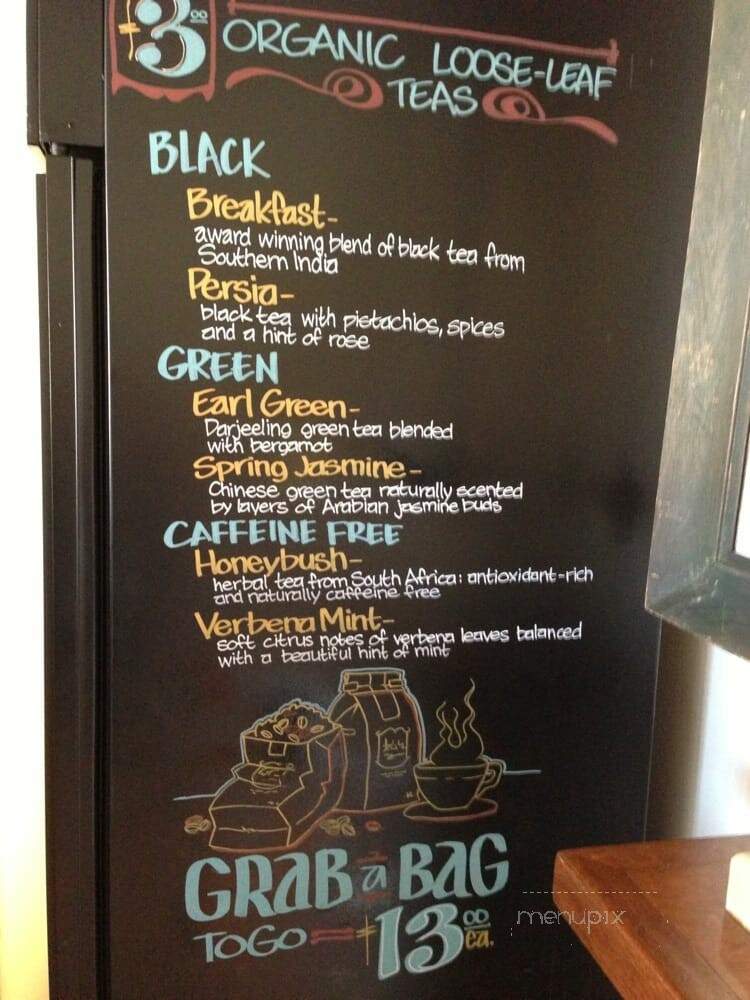 $3.00
ORGANIC LOOSE-LEAF
TEAS
BLACK
Breakfast-
award winning blend of black tea from
Southern India
Persia-
black tea with pistachios, spices
and a hint of rose
GREEN
Earl Green-
Darjeeling green tea blended
with bergamot
Spring Jasmine-
Chinese green tea naturally scented
by layers of Arabian jasmine buds
CAFFEINE FREE
Honeybush-
herbal tea from South Africa: antioxidant-rich
and naturally caffeine free
Verbena Mint-
soft citrus notes of verbena leaves balanced
with a beautiful hint of mint
GRAB a BAG
TO GO = $13.00 ea.
menupix